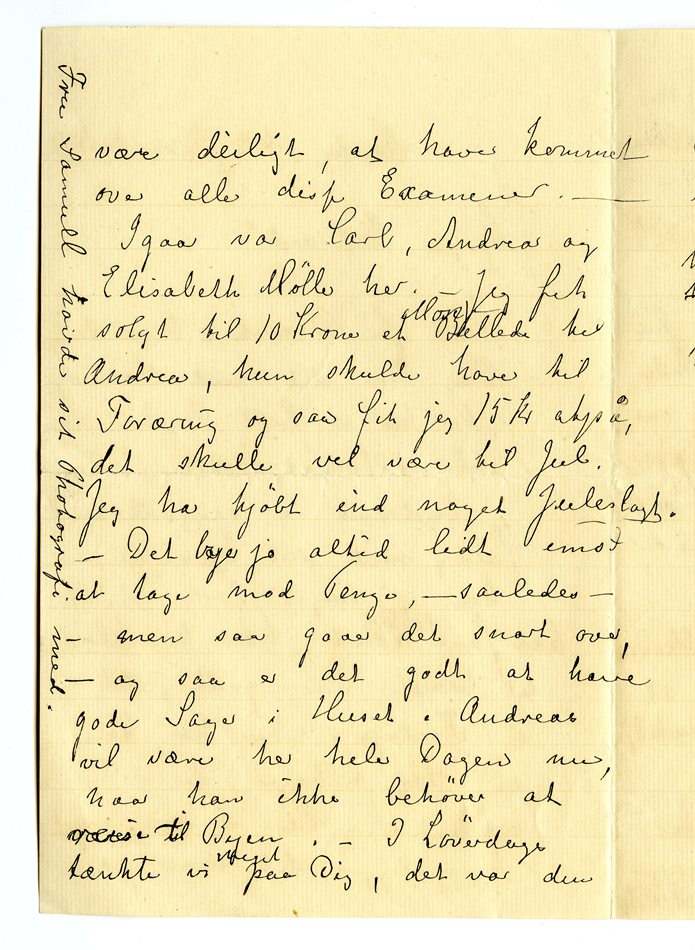 være deiligt, at have kommet
over alle disse Examener. —
Igaar var Carl, Andrea og
Elisabeth Mölle her. — Jeg fik
solgt til 10 Krone et Billede til
Andrea, hun skulde have til
Foræring og saa fik jeg 15 Kr atpå,
det skulle vel være til Jul.
Jeg har kjöbt ind noget Juleslagt.
— Det byer jo altid lidt imod
at tage mod Penge, — saaledes —
— men saa gaar det snart over,
— og saa er det godt at have
gode Sager i Huset. Andreas
vil være her hele Dagen nu,
naar han ikke behöver at
reise til Byen. — I Löverdags
tænkte vi meget paa Dig, det var den
Fru Samull havde sit Photografi med.